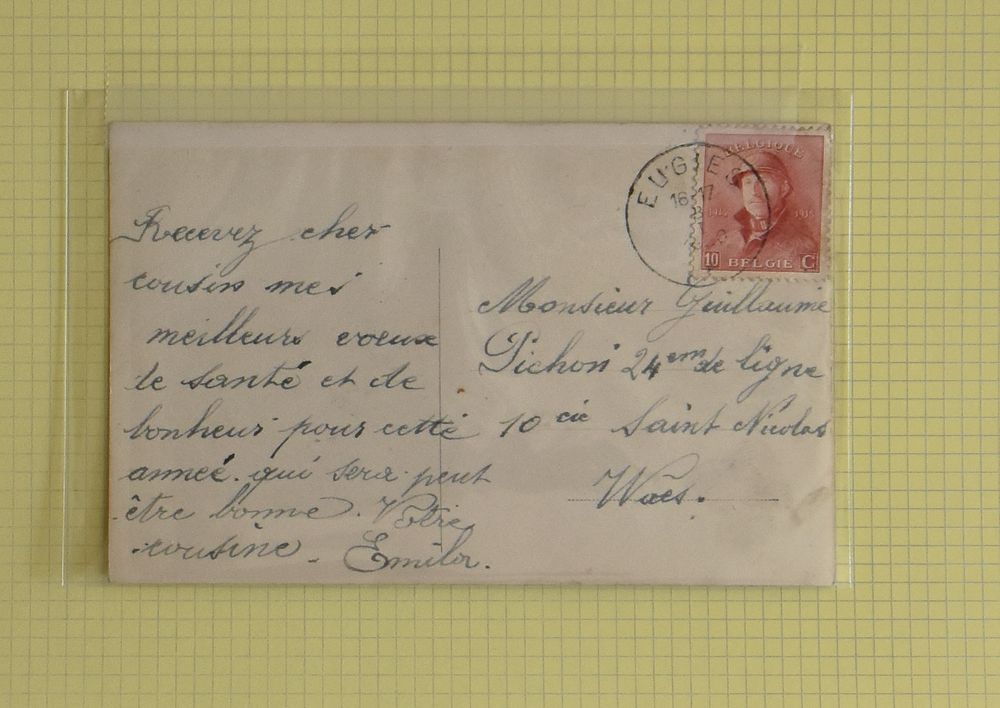 Recevez cher
cousin mes
meilleurs voeux
de santé et de
bonheur pour cette
anneé. qui sera peut
être bonne. Votre
cousine. Emilia.
EUGIES
16-17
BELGIQUE
1914 1918
10 BELGIE C
Monsieur Guillaume
Pichon 24 em de ligne
10 cie Saint Nicolas
Waes.